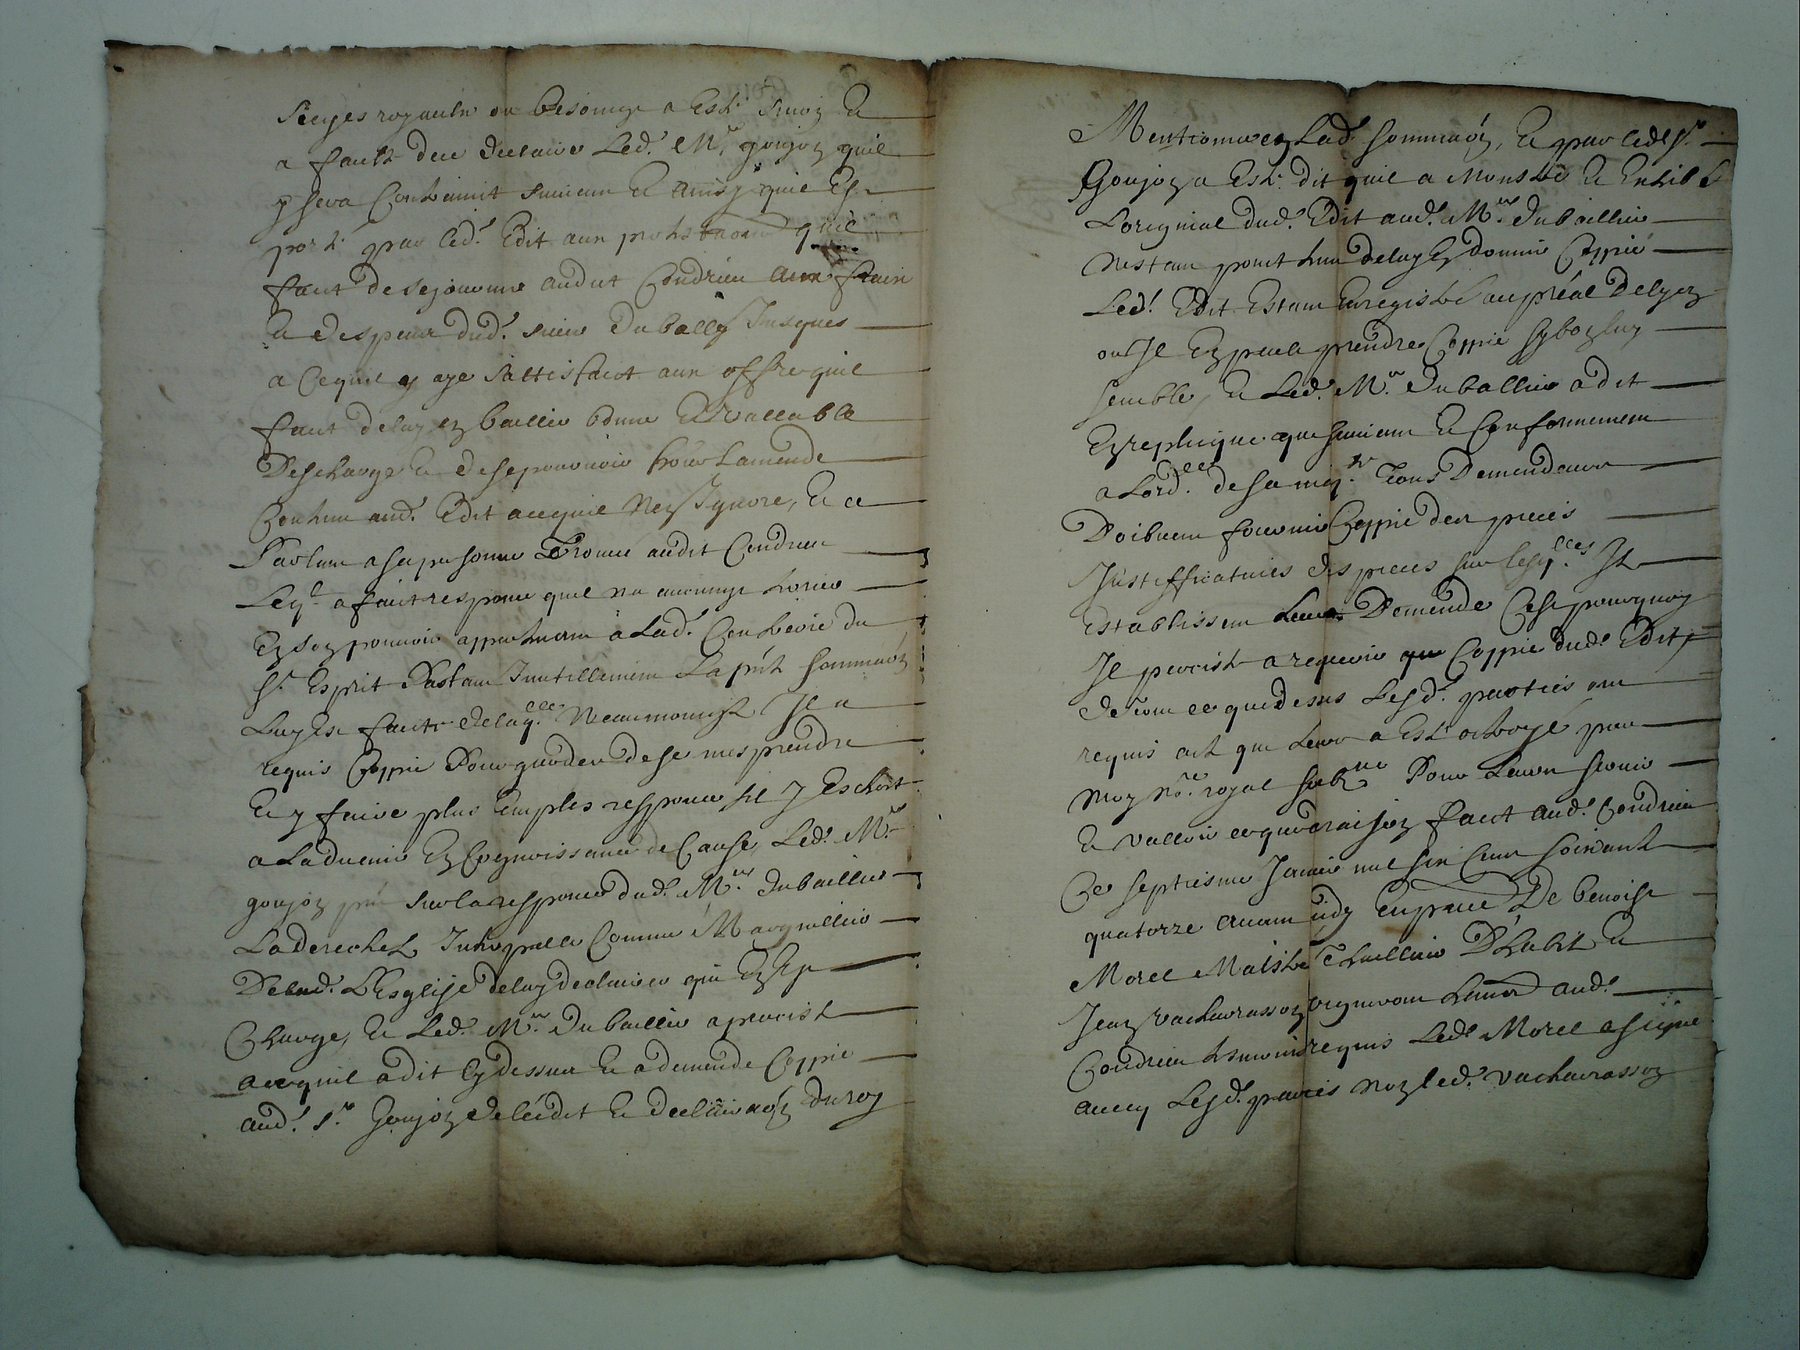 sieges royaulx ou besoingz a esté et
a faulte de ce declaire led. Mr goujon quil
y sera contrainct suivant et ainsy quil est
porté par led. Edit aux protestaons quil
faict de sejourner audit Condrieu aux frais
et despens dud. sieur Duballier Jusques
a ce quil y aye sattisfaict aux offres quil
faict de luy en bailler bonne et vallable
Descharge et de se pourvoir pour Lamende
Contenue aud. Edit ace quil nen Ignore, et ce
Parlant a sa personne Trouvé audit Condrieu
Leql a faict responce quil na aucungz tiltres
En son pouvoir appartenant a Lad. Confrerie du
St Esprit Partant Inutillement La pnt sommaon
Luy est faicte de laqlle Neanmoingz Il a
requis Coppie Pour garder de se mesprendre
Et y faire plus amples responce sil y Eschoit
a Ladvenir En Cognoissance de Cause, Led. Mr
goujon sur la responce dud. Mre Duballier
La derechef Interpelle Comme Marguillier
De lad. L'Esglise de luy declairer qui En est
Charge, et Led. Mre Duballier a percisté
a ce quil a dit Cy dessus et a demende Coppie
aud. Sr Goujon de lédit et declairaon du roy
Mentionnes en Lad. sommaon, et par led. Sr
Goujon a esté dit quil a monstré et Exhibé
Loriginal dud. Edit aud. Mre Duballier
Nestant point tenu de luy En donner Coppie
Led. Edit Estant Enregistré au préal de lyon
ou Il En peult prendre Coppie sy bon luy
semble, et Led. Mre Duballier a dit
En replicque que suivant et Conformement
a Lordce de sa majte Tous Demendeurs
Doibvent fournir Coppie des pieces
Justifficatives des pieces sur lesqlles Ilz
Establissent Leurs Demende Cest pourquoy
Il percisté a requerir Coppie dud. Edit
De Tout ce que dessus Lesd. parties ont
requis acte que Leur a Esté octroyé par
moy Nore royal sousne Pour Leurs servir
et valloir ce que de raison faict aud. Condrieu
Ce septiesme Janvier mil six Cens soixante
quatorze avant midy En pnce De benoist
Morel Maistre Thaillieur D'habit et
Jean vacharasson vigneron aud.
Condrieu tesmoins requis Led. Morel a signé
avecq Lesd. parties Non led. vacharasson